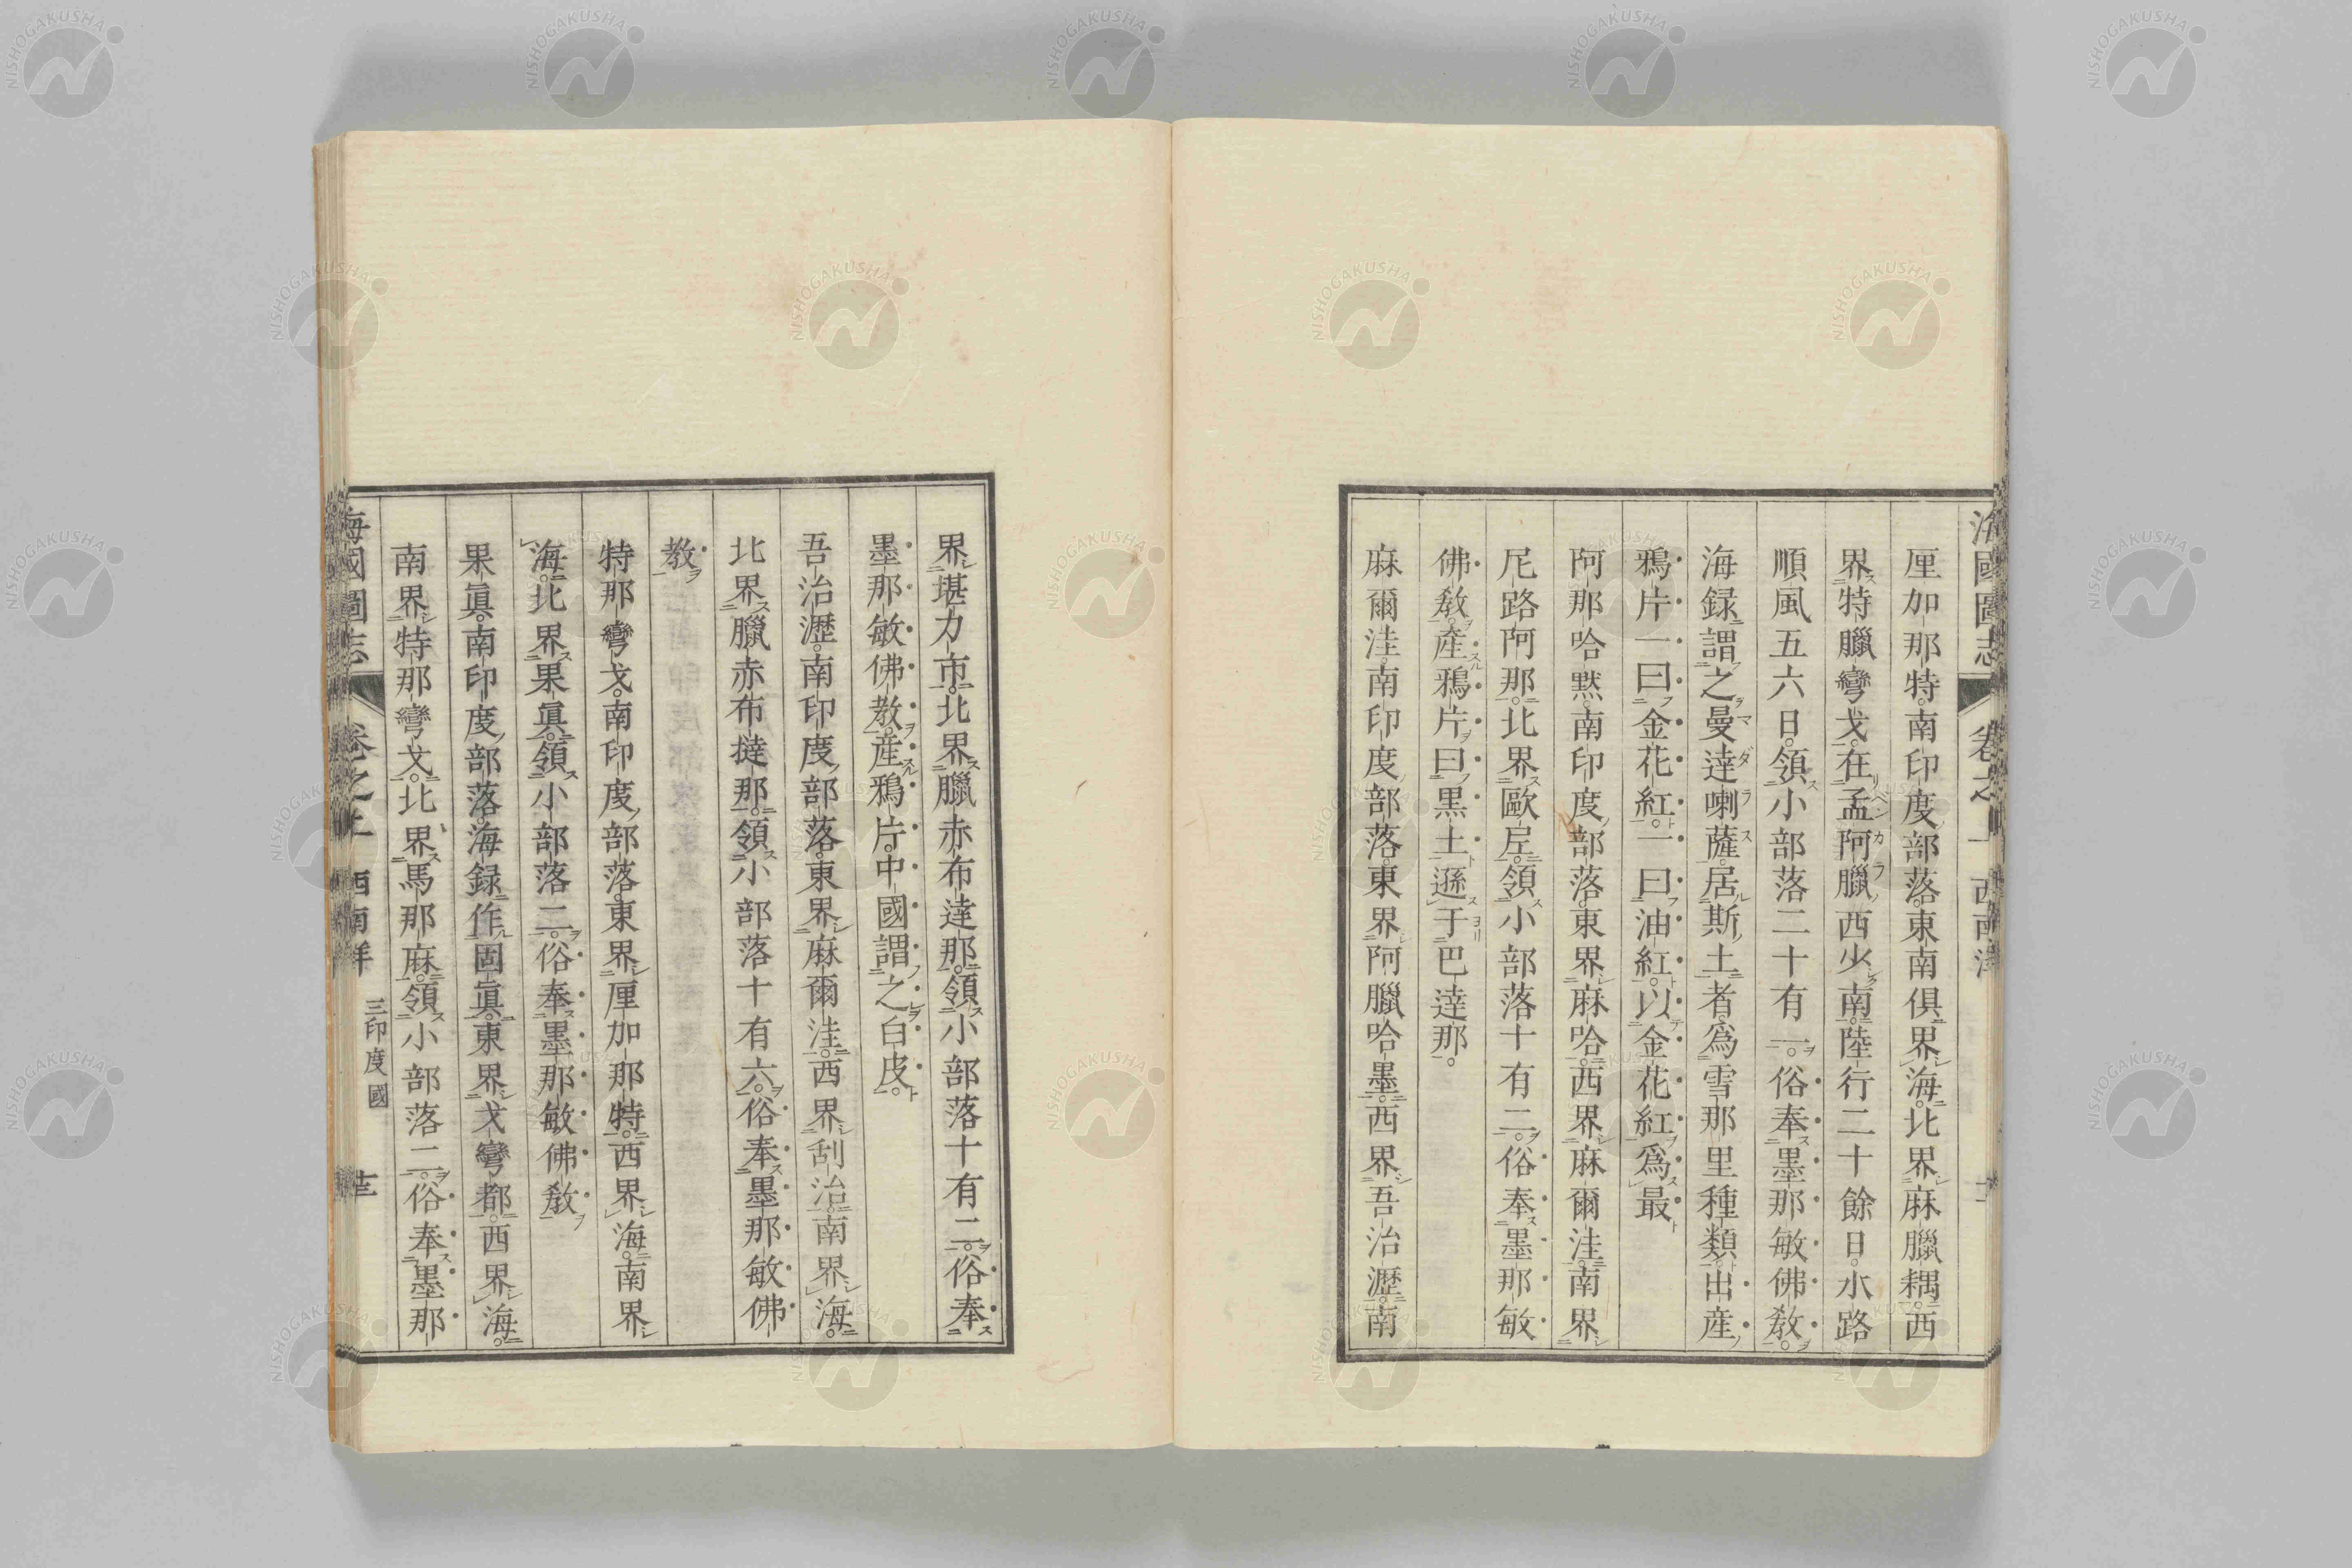 厘加那特。南印度部落。東南俱界海。北界麻臘耦。西
界特臘彎戈。在孟阿臘西少南。陸行二十餘日。水路
順風五六日。領小部落二十有一。俗奉墨那敏佛敎。
海録謂之曼達喇薩。居斯土者。爲雪那里種類。出産
鴉片。一曰金花紅。一曰油紅。以金花紅爲最
阿那哈默。南印度部落。東界麻哈。西界麻爾洼。南界
尼路阿那。北界歐㞐。領小部落十有二。俗奉墨那敏
佛敎。産鴉片。曰黑土。遜于巴達那。
麻爾洼。南印度部落。東界阿臘哈墨。西界吾治瀝。南
界堪力市。北界臘赤布達那。領小部落十有二。俗奉
墨那敏佛敎。産鴉片。中國謂之白皮。
吾治瀝。南印度部落。東界麻爾洼。西界刮治。南界海。
北界臘赤布撻那。領小部落十有六。俗奉墨那敏佛
敎
特那彎戈。南印度部落。東界厘加那特。西界海。南界
海。北界果眞。領小部落二。俗奉墨那敏佛敎
果眞。南印度部落。海録作固眞。東界戈彎都。西界海。
南界特那彎戈。北界馬那麻。領小部落二。俗奉墨那
海國圖志
卷之上
西南洋
三印度國
NISHOGAKUSHA